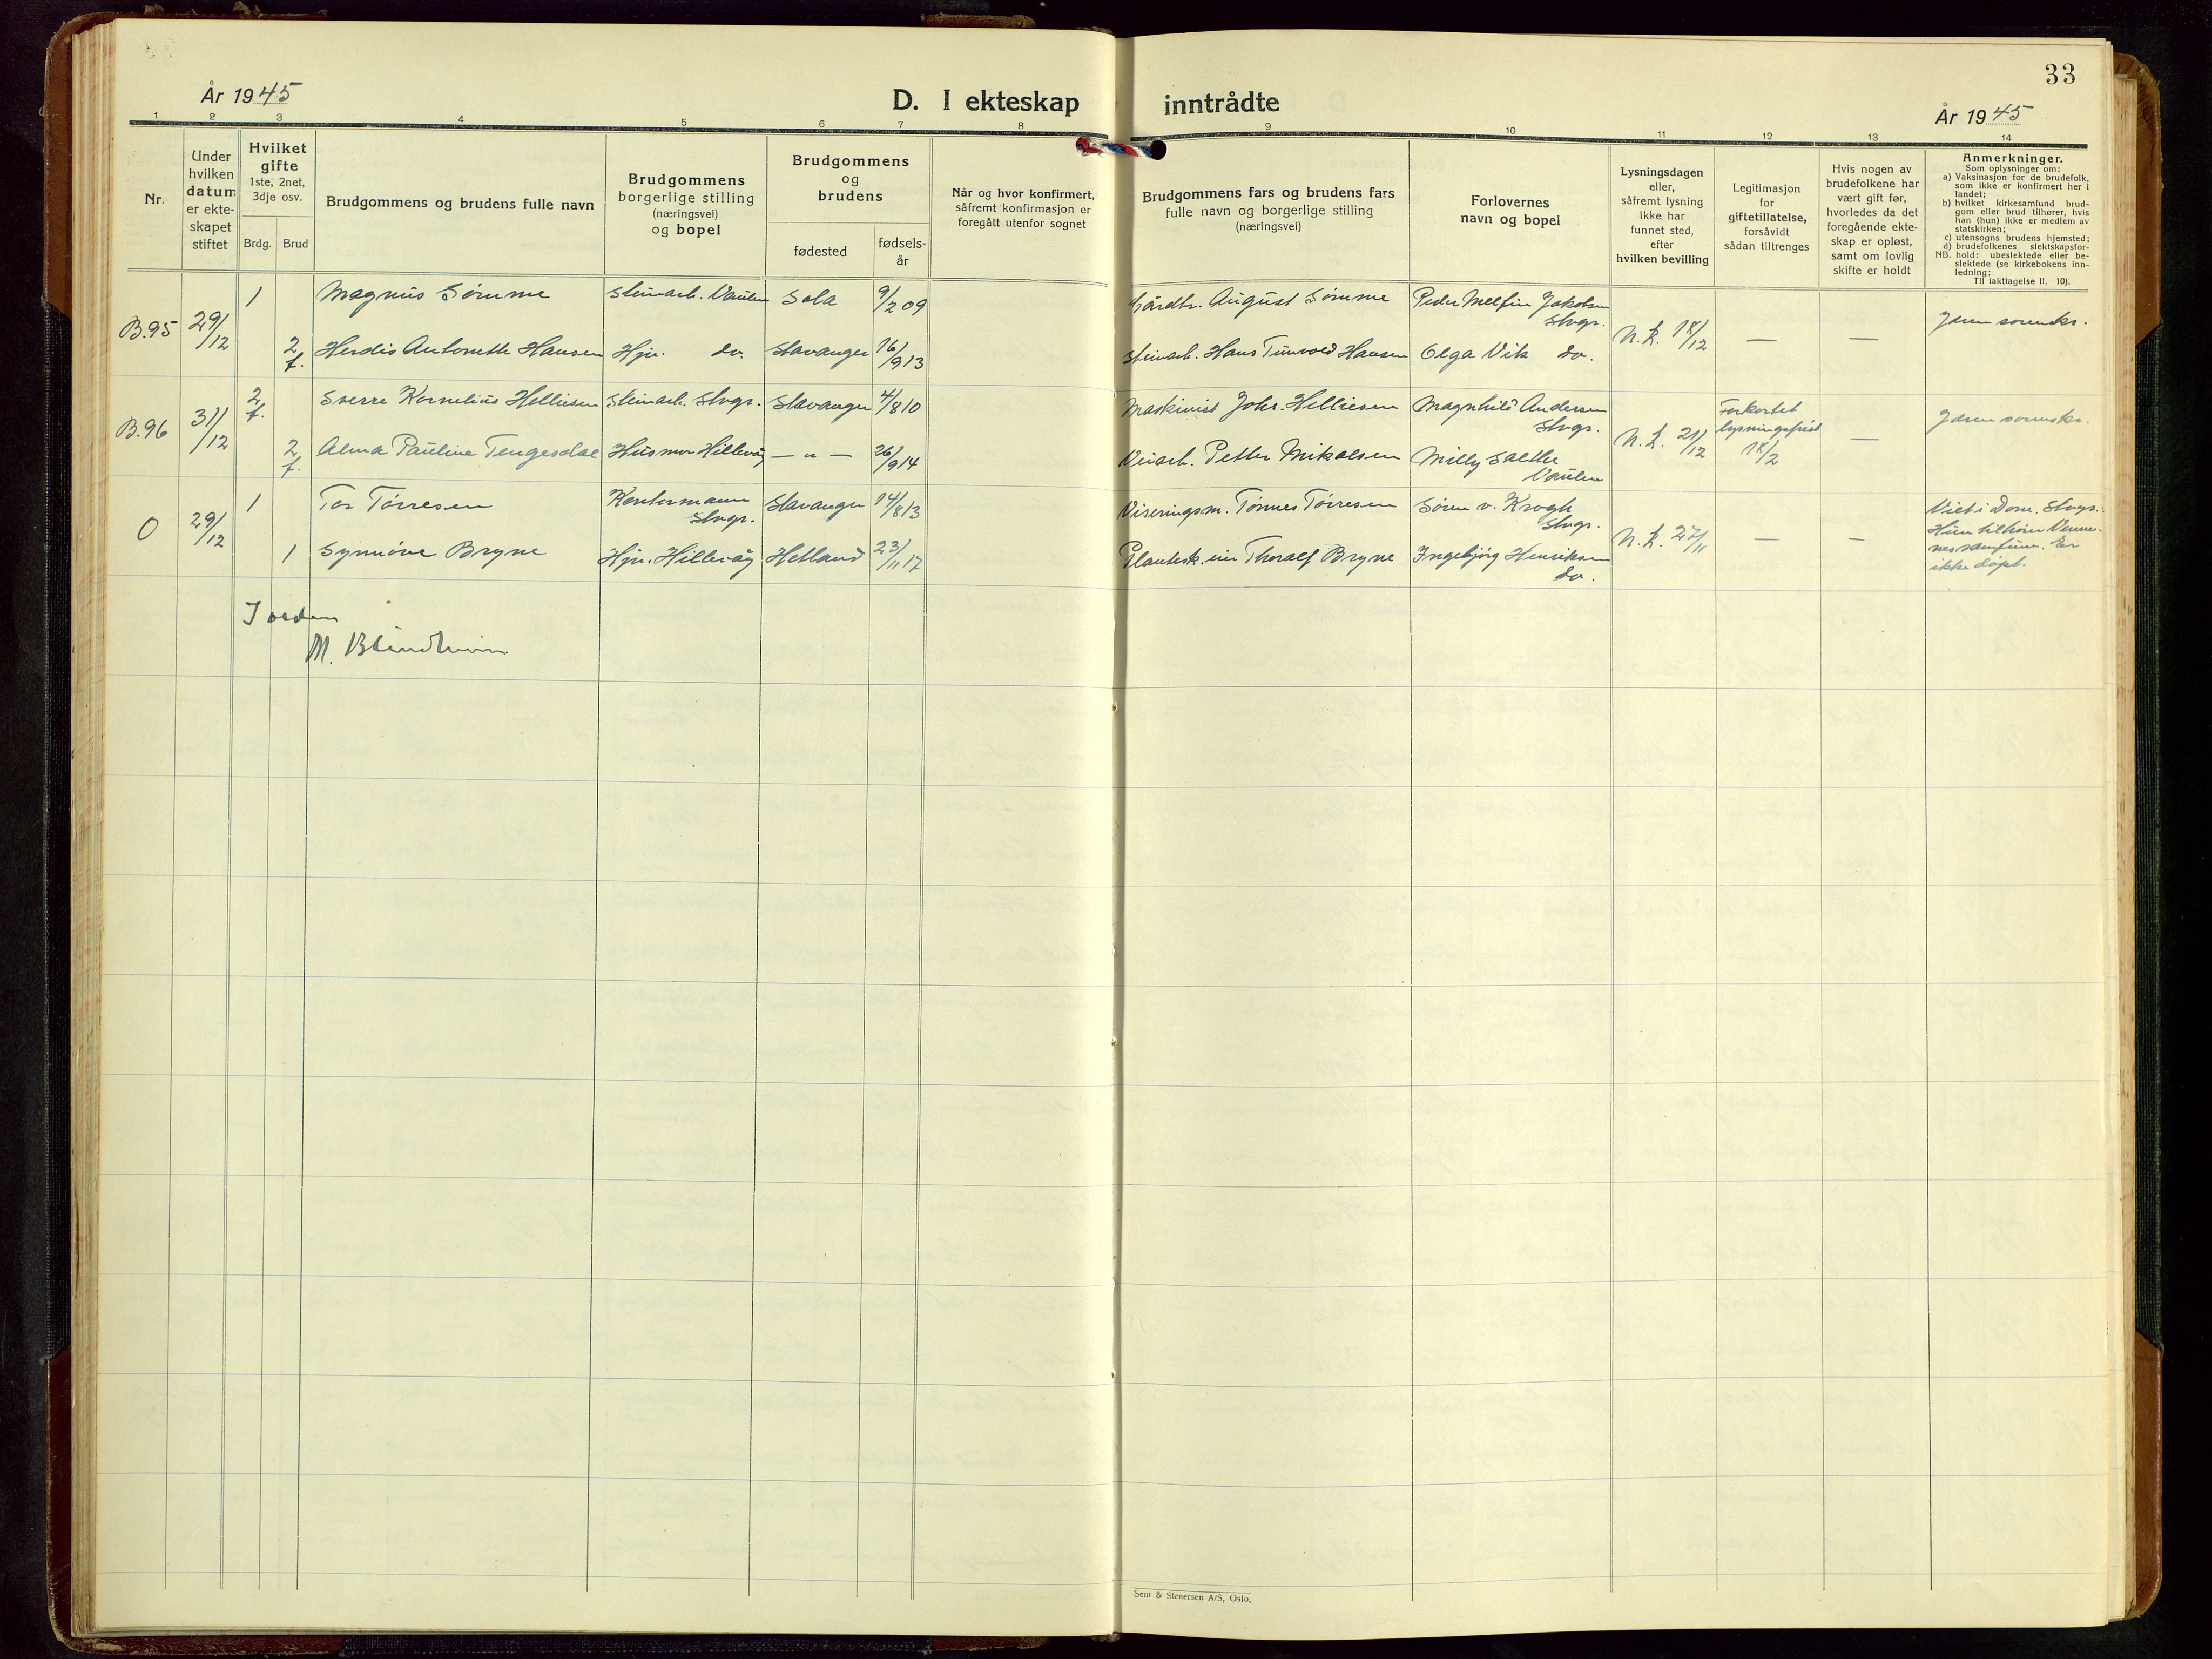 33
År 1945
D. I ekteskap inntrådte
År 1945
1 2 3 4 5 6 7 8 9 10 11 12 13 14
Nr.
Under
hvilken
datum
er ekte-
skapet
stiftet
Hvilket
gifte
1ste, 2net,
3dje osv.
Brdg. Brud
Brudgommens og brudens fulle navn
Brudgommens
borgerlige stilling
(næringsvei)
og bopel
Brudgommens
og
brudens
fødested
fødsels-
år
Når og hvor konfirmert,
såfremt konfirmasjon er
foregått utenfor sognet
Brudgommens fars og brudens fars
fulle navn og borgerlige stilling
(næringsvei)
Forlovernes
navn og bopel
Lysningsdagen
eller,
såfremt lysning
ikke har
funnet sted,
efter
hvilken bevilling
Legitimasjon
for
giftetillatelse,
forsåvidt
sådan tiltrenges
Hvis nogen av
brudefolkene har
vært gift før,
hvorledes da det
foregående ekte-
skap er opløst,
samt om lovlig
skifte er holdt
Anmerkninger.
Som oplysninger om:
a) Vaksinasjon for de brudefolk,
som ikke er konfirmert her i
landet;
b) hvilket kirkesamfund brud-
gom eller brud tilhører, hvis
han (hun) ikke er medlem av
statskirken;
c) utensogns brudens hjemsted;
d) brudefolkenes slektskapsfor-
NB. hold: ubeslektede eller be-
slektede (se kirkebokens inn-
ledning;
Til iakttagelse II. 10).
B.95 29/12
1 Magnus Sømme Steinarb. Vaulen Sola 9/2 09
Gårdbr. August Sømme Peder Jakobsen
Stvgr.
2 f. Herdis Antonette Hansen Hjv. do. Stavanger 16/9 13
Steinarb. Hans Tunvold Hansen Olga Vik do.
N. L. 18/12 — — Jæren sorenskr.
B.96 31/12
2 f. Sverre Kornelius Helliesen Steinarb. Stvgr. Stavanger 4/8 10
Maskinist Johs. Helliesen Magnhild Andersen
Stvgr.
2 f. Alma Pauline Tengesdal Husmor Hillevåg — " — 26/9 14
Veiarb. Petter Mikalsen Milly Salthe
Vaulen
N. L. 21/12
Forkortet
lysningsfrist
18/2
— Jæren sorenskr.
0 29/12
1 Tor Tørresen Kontormann
Stvgr. Stavanger 14/8 13
Viseringsm. Tønnes Tørresen Søren v. Krogh
Stvgr.
1 Synnøve Bryne Hjv. Hillevåg Hetland 23/11 17
Planteskoleeier Thoralf Bryne Ingebjørg Henriksen
do.
N. L. 27/11 — —
Viet i Dom. Stvgr.
Hun tilhører Venne-
nes samfunn. Er
ikke døpt.
I orden
M. Blindheim
Sem & Stenersen A/S, Oslo.